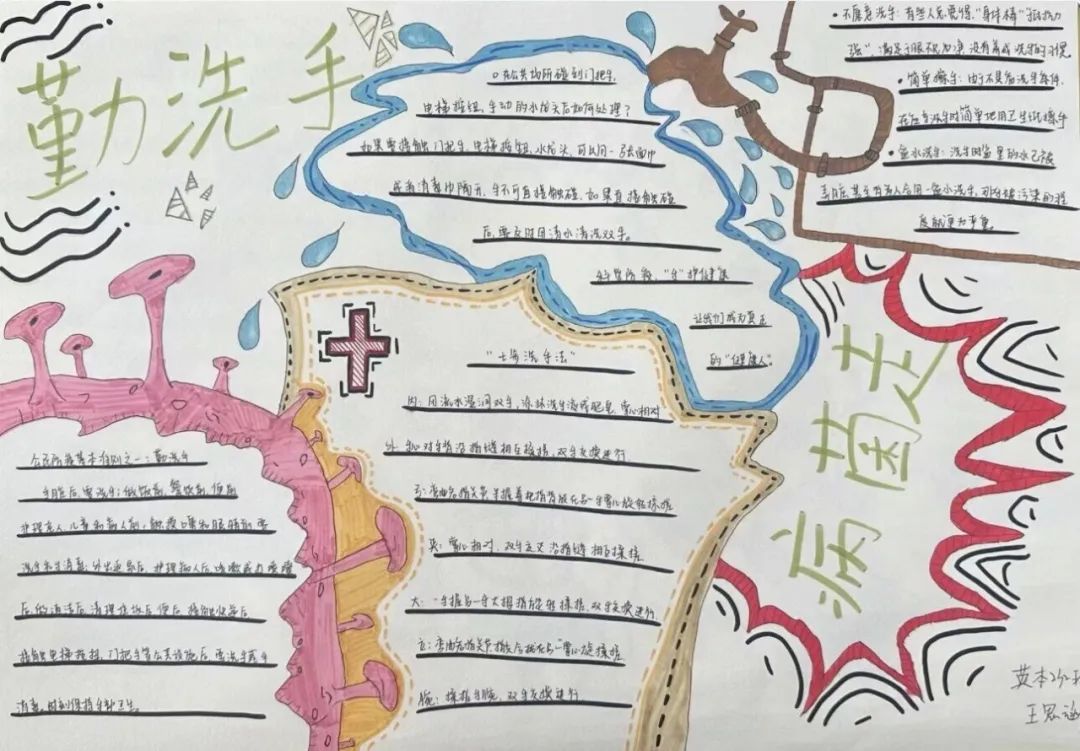 勤洗手
在公共场所碰到门把手、
电梯按钮、手动的水龙头后如何处理？
如果要接触门把手、电梯按钮、水龙头,可以用一张面巾
或者消毒巾隔开,手不可直接触碰,如果直接触碰
后,要及时用清水清洗双手。
科学防疫、"手"护健康
让我们成为真正
的"健康人"。
•不屑于洗手:有些人总觉得,"身体棒""抵抗力
强"满足于眼不见为净,没有养成洗手的习惯
•简单擦手:由于不具备洗手条件,
在应当洗手时简单地用卫生纸擦手
•盆水洗手:洗手时盆里的水已被
弄脏,甚至有多人合用一盆水洗手,可因被污染的程
度就更为严重。
"七步洗手法"
内:用流水湿润双手,涂抹洗手液或肥皂,掌心相对
外:手心对手背沿指缝相互揉搓,双手交换进行
弓:弯曲各指关节,半握拳把指背放在另一手掌心旋转揉搓
夹:掌心相对,双手交叉沿指缝相互揉搓
大:一手握另一手大拇指旋转揉搓,双手交换进行
立:弯曲各指关节,指尖合拢在另一掌心旋揉搓
腕:揉搓手腕,双手交换进行
公民防疫基本准则之一:勤洗手
手脏后,要洗手;做饭前,餐饮前,便前
护理老人、儿童和病人前,触摸口鼻和眼睛前要
洗手或手消毒,外出返家后,护理病人后,咳嗽或打喷嚏
后,做清洁后,清理垃圾后,便后,接触快递后
接触电梯按钮、门把手等公共设施后,要洗手或手
消毒。时刻保持手部卫生。
病菌止
英本
王思涵